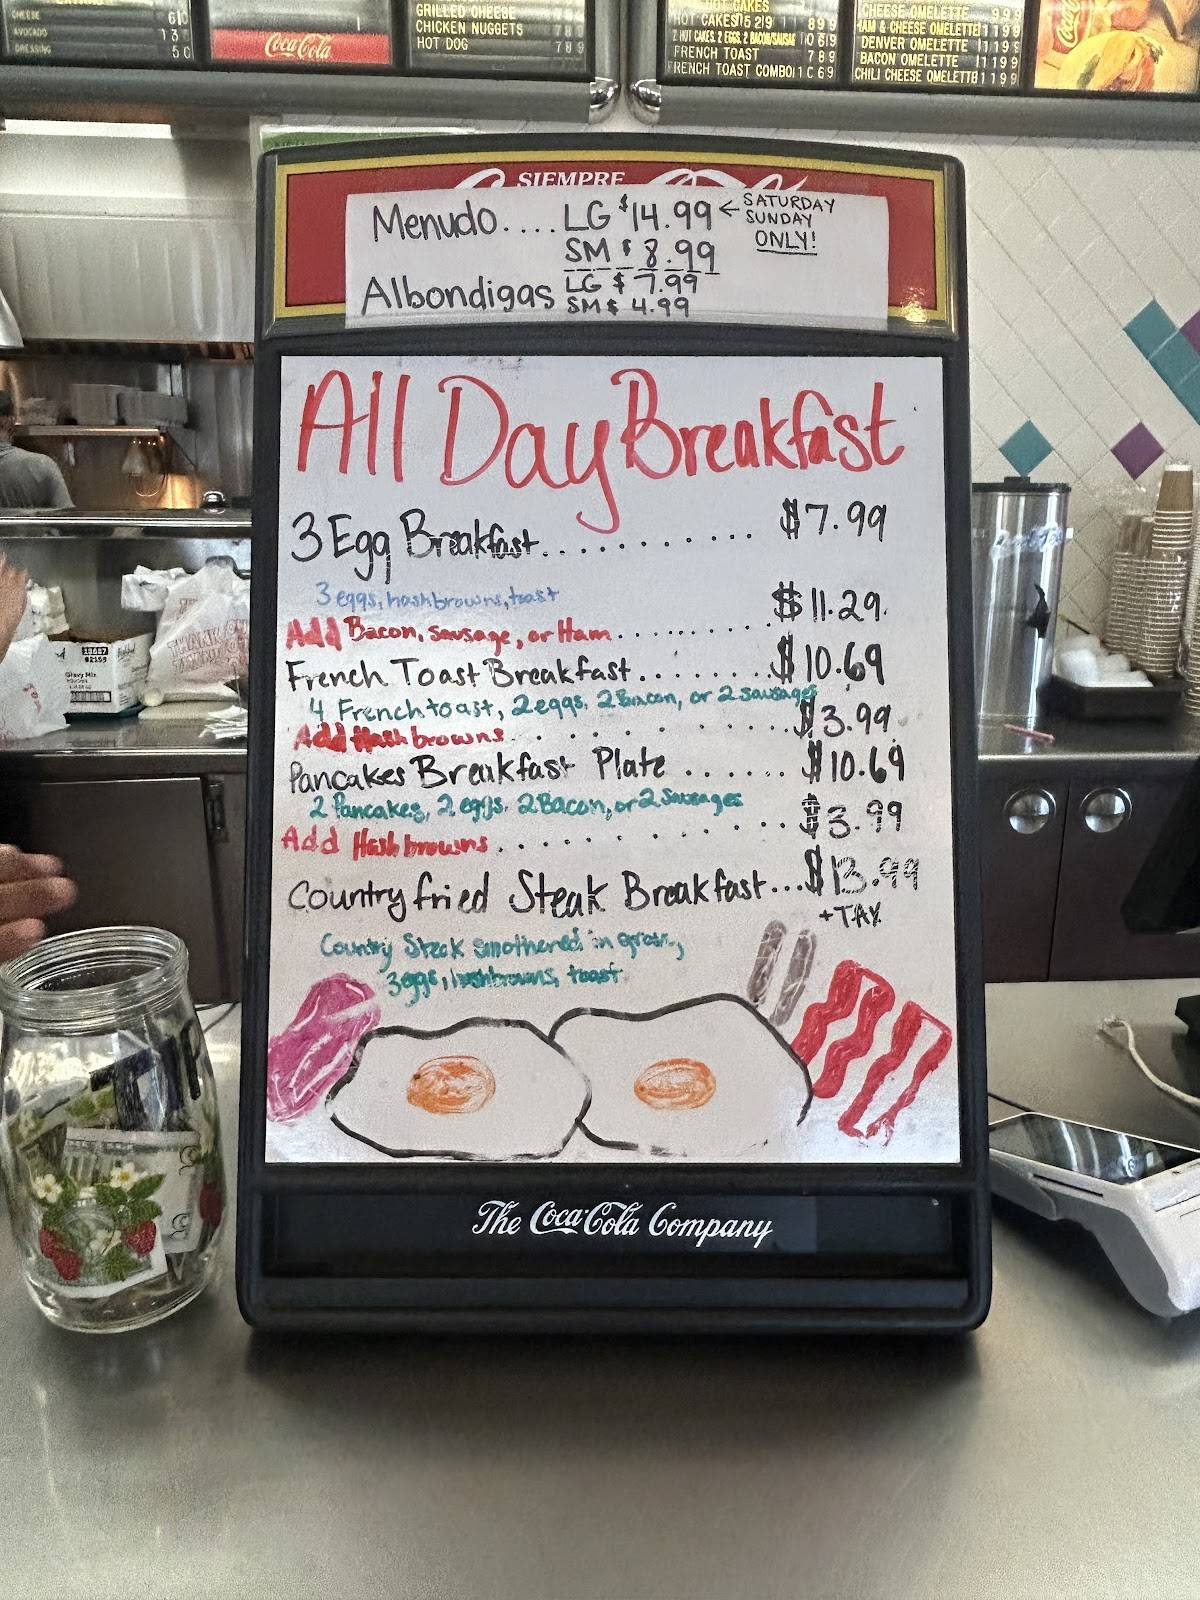 CHEESE
AVOCADO
DRESSING 50
Coca-Cola
GRILLED CHEESE
CHICKEN NUGGETS 789
HOT DOG 789
HOT CAKES
FRENCH TOAST 789
FRENCH TOAST COMBO
CHEESE OMELETTE 999
HAM & CHEESE OMELETTE 1199
DENVER OMELETTE 1199
BACON OMELETTE 1199
CHILI CHEESE OMELETTE 1199
SIEMPRE
Menudo.... LG $14.99 ← SATURDAY
SUNDAY
ONLY!
SM $ 8.99
Albondigas LG $ 7.99
SM $ 4.99
All Day Breakfast
3 Egg Breakfast........... $7.99
3 eggs, hashbrowns, toast
Add Bacon, sausage, or Ham......... $11.29
French Toast Breakfast........ $10.69
4 French toast, 2 eggs, 2 Bacon, or 2 sausages
Add Hashbrowns.......... $3.99
Pancakes Breakfast Plate ...... $10.69
2 Pancakes, 2 eggs, 2 Bacon, or 2 Sausages
Add Hashbrowns.......... $3.99
Country fried Steak Breakfast...$13.99
+TAX
Country Steak smothered in gravy,
3 eggs, hashbrowns, toast
Gravy Mix
TIP
The Coca-Cola Company